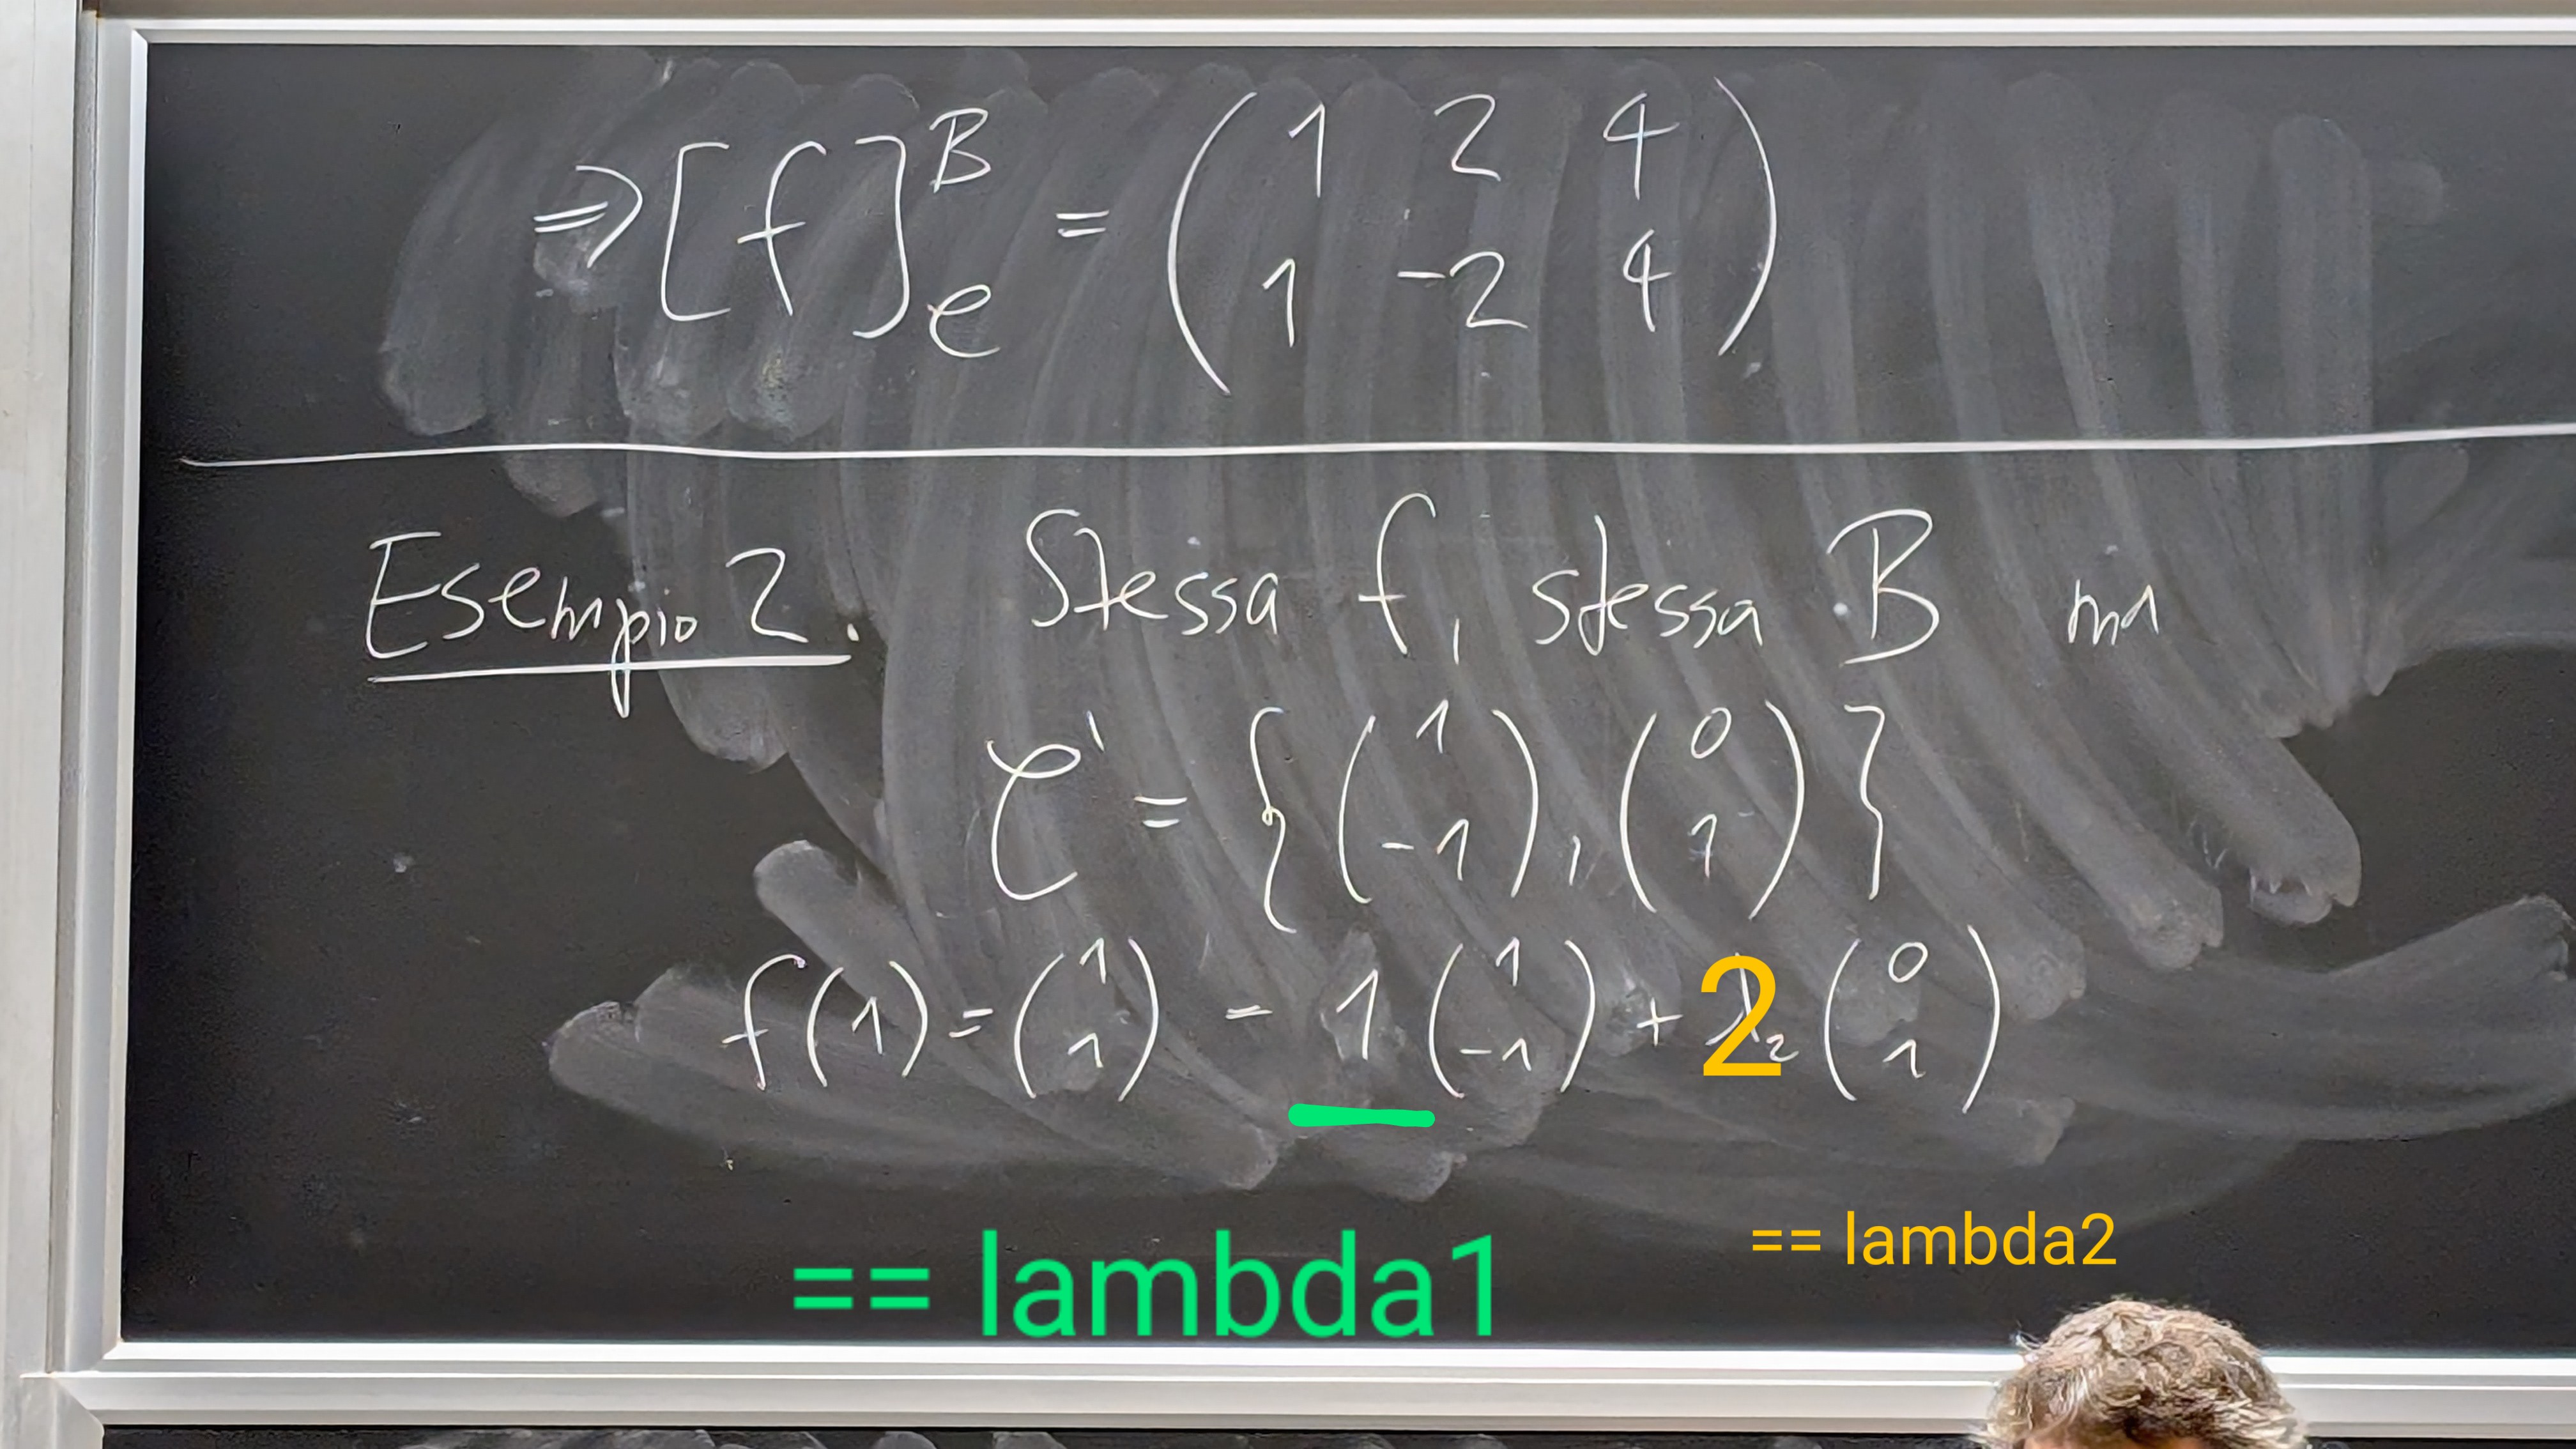 ⇒ [f]_e^B = ( 1 2 4
1 -2 4 )
Esempio 2. Stessa f, stessa B ma
C' = { ( 1 -1 ) , ( 0 1 ) }
f(1) = ( 1 1 ) = 1 ( 1 -1 ) + 2 λ₂ ( 0 1 )
== lambda2
== lambda1